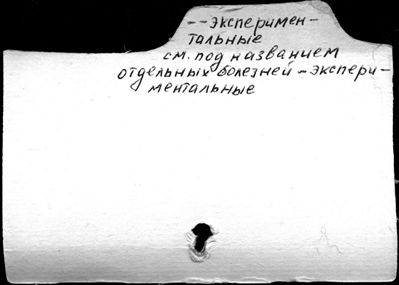 --эксперимен-
тальные
см. под названием
отдельных болезней - экспери-
ментальные